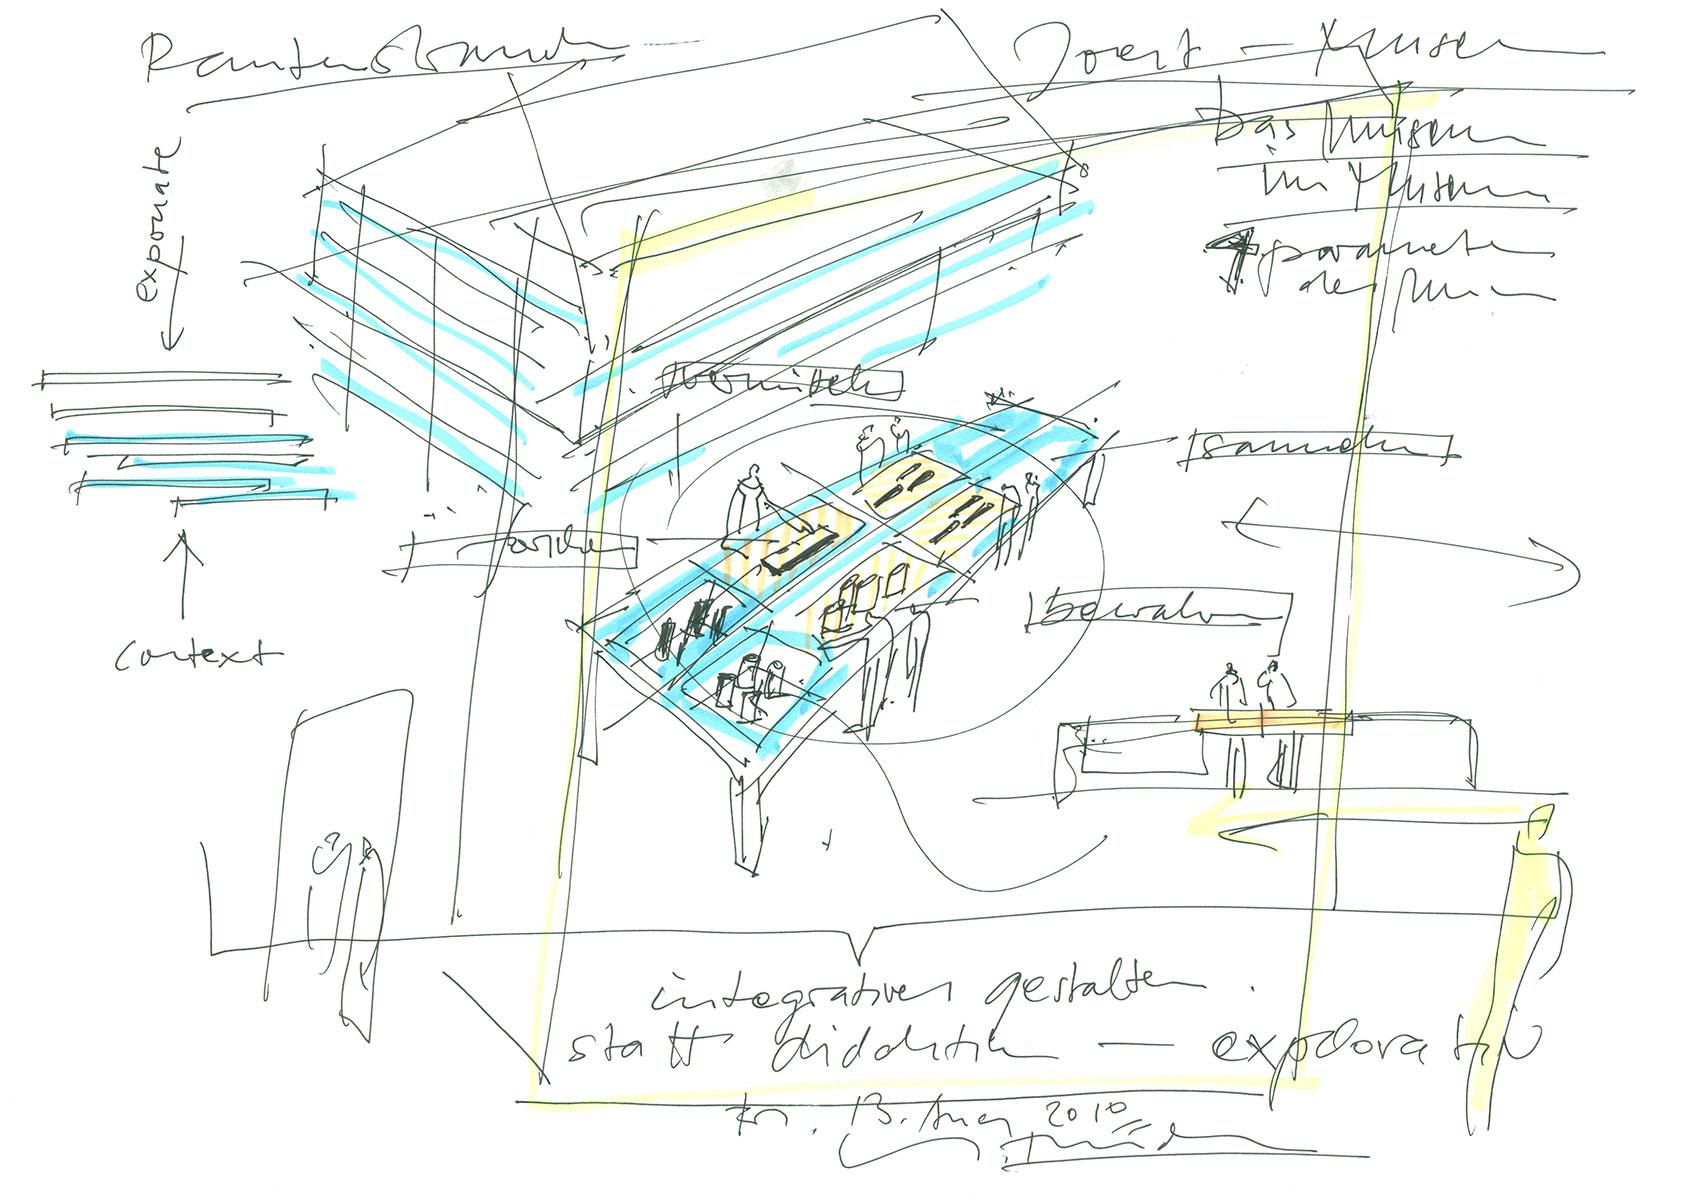 Rautenstrauch Joest - Museum
Das Museum
im Museum
4 Parameter
des Museums
exponate
vermitteln
sammeln
forschen
bewahren
context
integratives gestalten.
statt didaktik — explorativ
Fr. 13. Aug 2010